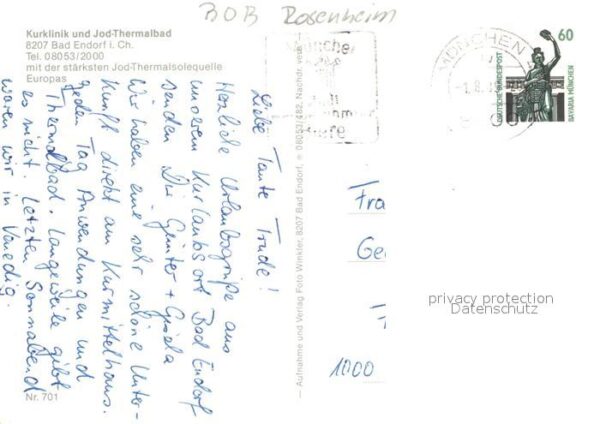 BOB Rosenheim
Kurklinik und Jod-Thermalbad
8207 Bad Endorf i. Ch.
Tel. 08053/2000
mit der stärksten Jod-Thermalsolequelle
Europas
Liebe Tante Trude!
Herzliche Urlaubsgrüße aus
unserem Kurlaubsort Bad Endorf
senden Dir Günter + Gisela
Wir haben eine sehr schöne Unter-
kunft direkt am Kurmittelhaus.
Jeden Tag Anwendungen und
Thermalbad. Langeweile gibt
es nicht. Letzten Sonnabend
waren wir in Venedig.
Nr. 701
— Aufnahme und Verlag Foto Winkler, 8207 Bad Endorf, 08053/482, Nachdr. verb.
MÜNCHEN
60
DEUTSCHE BUNDESPOST
BAVARIA MÜNCHEN
Fra
Ge
1000
privacy protection
Datenschutz